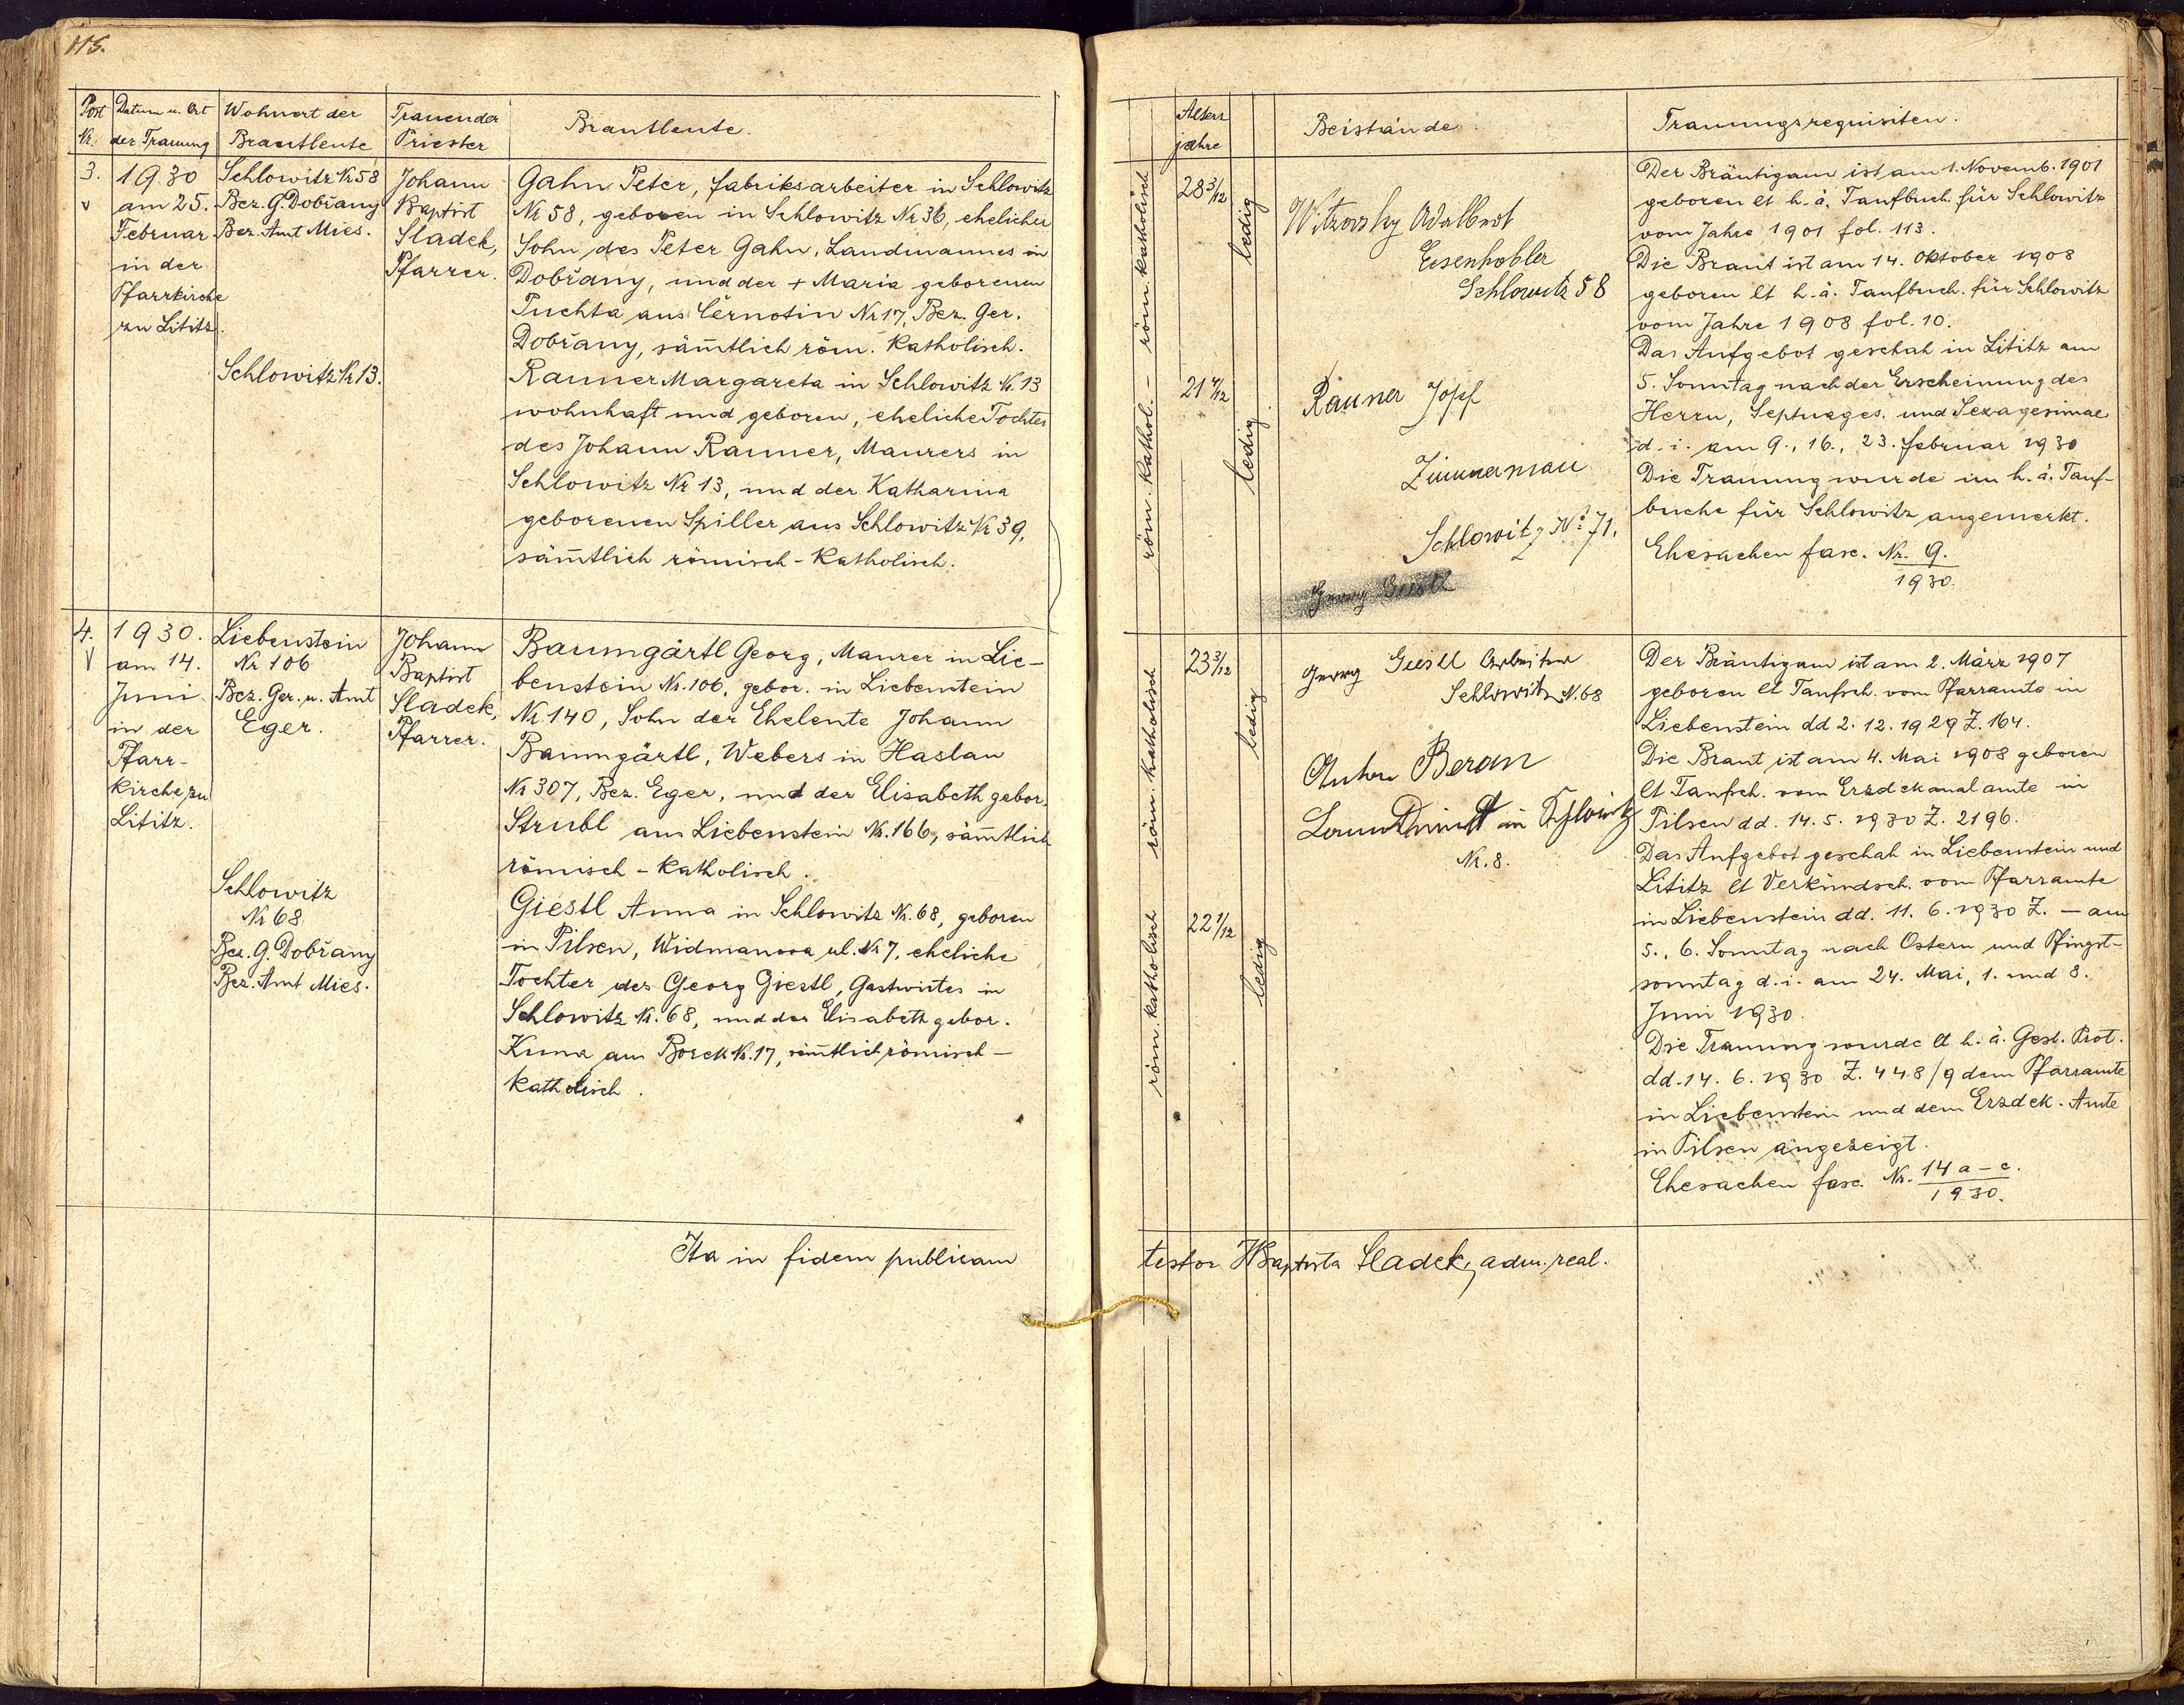 115.
Post Nr.
Datum u. Ort der Trauung
Wohnort der Brautleute
Trauender Priester
Brautleute.
3.
v
1930
am 25.
Februar
in der
Pfarrkirche
zu Lititz.
Schlowitz Nr 58
Bez. G. Dobřany
Bez. Amt Mies.
Schlowitz Nr 13.
Johann
Baptist
Sladek,
Pfarrer.
Gahn Peter, Fabriksarbeiter in Schlowitz
Nr 58, geboren in Schlowitz Nr 36, ehelicher
Sohn des Peter Gahn, Landmannes in
Dobřany, und der + Maria geborenen
Puchta aus Černotin Nr 17, Bez. Ger.
Dobřany, sämtlich röm. Katholisch.
Rauner Margareta in Schlowitz Nr. 13
wohnhaft und geboren, eheliche Tochter
des Johann Rauner, Maurers in
Schlowitz Nr 13, und der Katharina
geborenen Spiller aus Schlowitz Nr 39,
säm̄tlich römisch-Katholisch.
4.
V
1930.
am 14.
Juni
in der
Pfarr-
Kirche zu
Lititz.
Liebenstein
Nr 106
Bez. Ger. u. Amt
Eger.
Schlowitz
Nr 68.
Bez. G. Dobřany
Bez. Amt Mies.
Johann
Baptist
Sladek,
Pfarrer.
Baumgärtl Georg, Maurer in Lie-
benstein Nr. 106, gebor. in Liebenstein
Nr 140, Sohn der Eheleute Johann
Baumgärtl, Webers in Haslau
Nr 307, Bez. Eger, und der Elisabeth gebor.
Strubl aus Liebenstein Nr. 166, säm̄tlich
römisch-Katholisch.
Giestl Anna in Schlowitz Nr. 68, geboren
in Pilsen, Widmanova ul. Nr 7, eheliche
Tochter des Georg Giestl, Gastwirtes in
Schlowitz Nr. 68, und der Elisabeth gebor.
Kuna aus Borek Nr. 17, säm̄tlich römisch-
Katholisch.
Ita in fidem publicam
Alters
jahre
Beistände
Trauungsrequisiten.
röm. Katholisch
röm. Kathol.
28 3/12
21 4/12
ledig
ledig.
Witzovsky Adalbert
Eisenhobler
Schlowitz 58
Rauner Josef
Zimmermann
Schlowitz Nº 71.
Georg Giestl
Der Bräutigam ist am 1. Novemb. 1901
geboren lt h. ä. Taufbuch für Schlowitz
vom Jahre 1901 fol. 113.
Die Braut ist am 14. Oktober 1908
geboren lt h. ä. Taufbuch. für Schlowitz
vom Jahre 1908 fol. 10.
Das Aufgebot geschah in Lititz am
5. Sonntag nach der Erscheinung des
Herrn, Septuages. und Sexagesimae
d. i. am 9., 16., 23. Februar 1930
Die Trauung wurde im h. ä. Tauf-
buche für Schlowitz angemerkt.
Ehesachen fasc. Nr. 9.
1930.
röm. Katholisch
röm. Katholisch
23 3/12
22 1/12
ledig
ledig
Georg Giestl Arbeiter
Schlowitz N. 68
Anton Beran
in Schlowitz
Nr. 8.
Der Bräutigam ist am 2. März 1907
geboren lt Taufsch. vom Pfarramte in
Liebenstein dd 2. 12. 1929 Z. 164.
Die Braut ist am 4. Mai 1908 geboren
lt Taufsch. vom Erzdekanalamte in
Pilsen dd. 14. 5. 1930 Z. 2196.
Das Aufgebot geschah in Liebenstein und
Lititz lt Verkündsch. vom Pfarramte
in Liebenstein dd. 11. 6. 1930 Z. — am
5., 6. Sonntag nach Ostern und Pfingst-
sonntag d. i. am 24. Mai, 1. und 8.
Juni 1930.
Die Trauung wurde lt h. ä. Gest. Prot.
dd. 14. 6. 1930 Z. 448/9 dem Pfarramte
in Liebenstein und dem Erzdek. Amte
in Pilsen angezeigt.
Ehesachen fasc. Nr. 14 a - c.
1930.
testor JBaptista Sladek, adm. real.